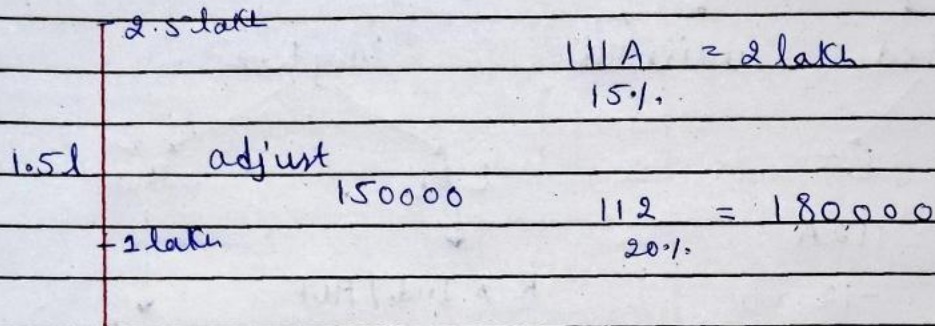 2.5 lakh
111A = 2 lakh
15%.
1.5l adjust
150000
112 = 180000
1 lakh
20%.